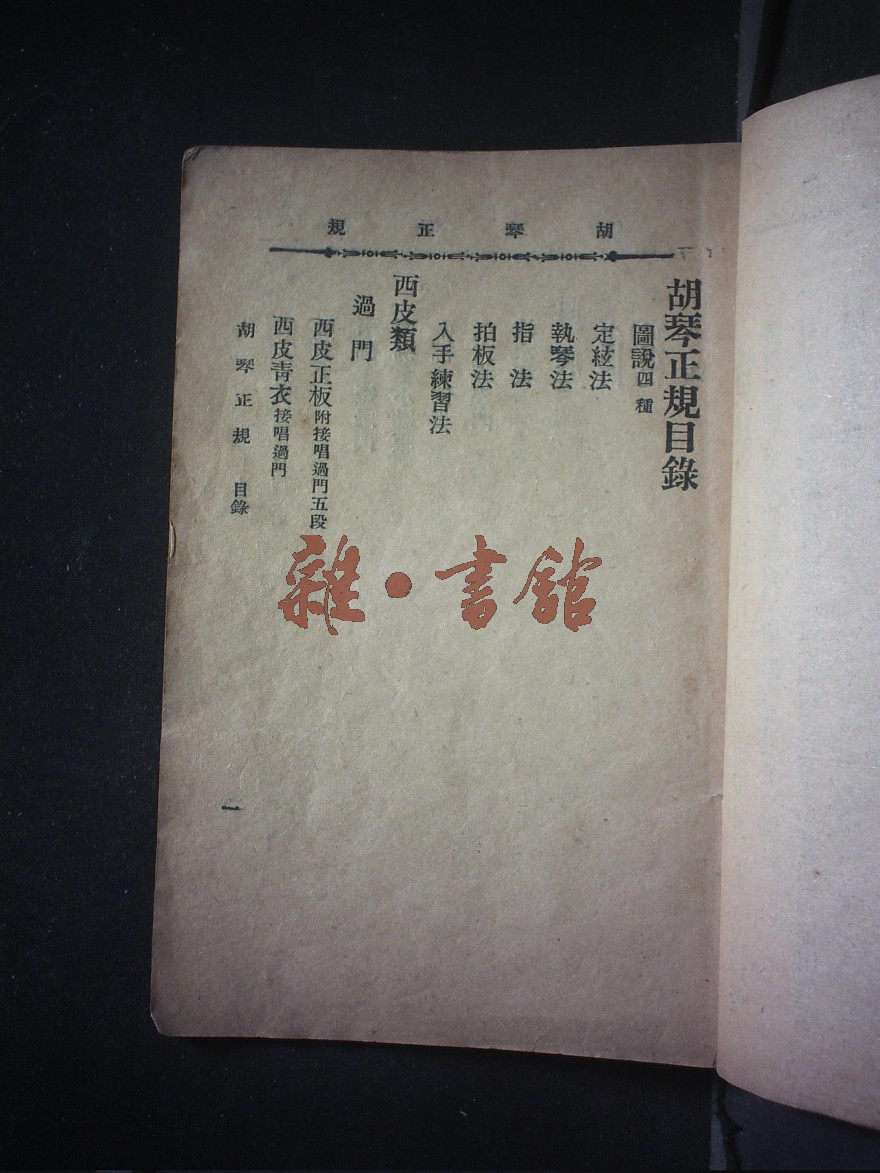 胡琴正規
胡琴正規目錄
圖說四種
定絃法
執琴法
指法
拍板法
入手練習法
西皮類
過門
西皮正板附接唱過門五段
西皮青衣接唱過門
胡琴正規 目錄
一
雜·書館